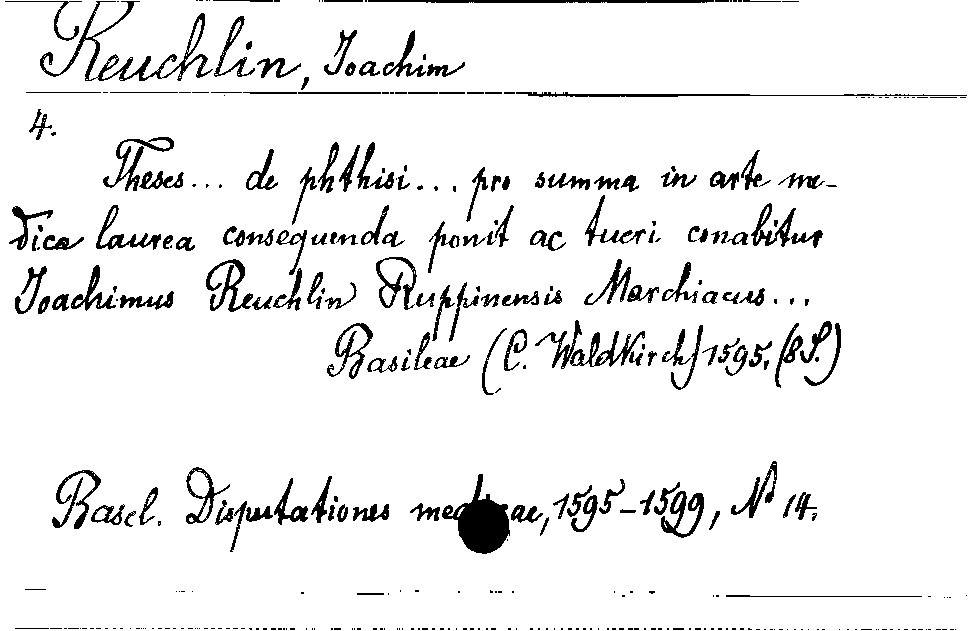 Reuchlin, Joachim
4.
Theses... de phthisi... pro summa in arte me-
dica laurea consequenda ponit ac tueri conabitur
Joachimus Reuchlin Ruppinensis Marchiacus...
Basileae (C. Waldkirch) 1595. (8 S.)
Basel. Disputationes medicae, 1595-1599, No 14.